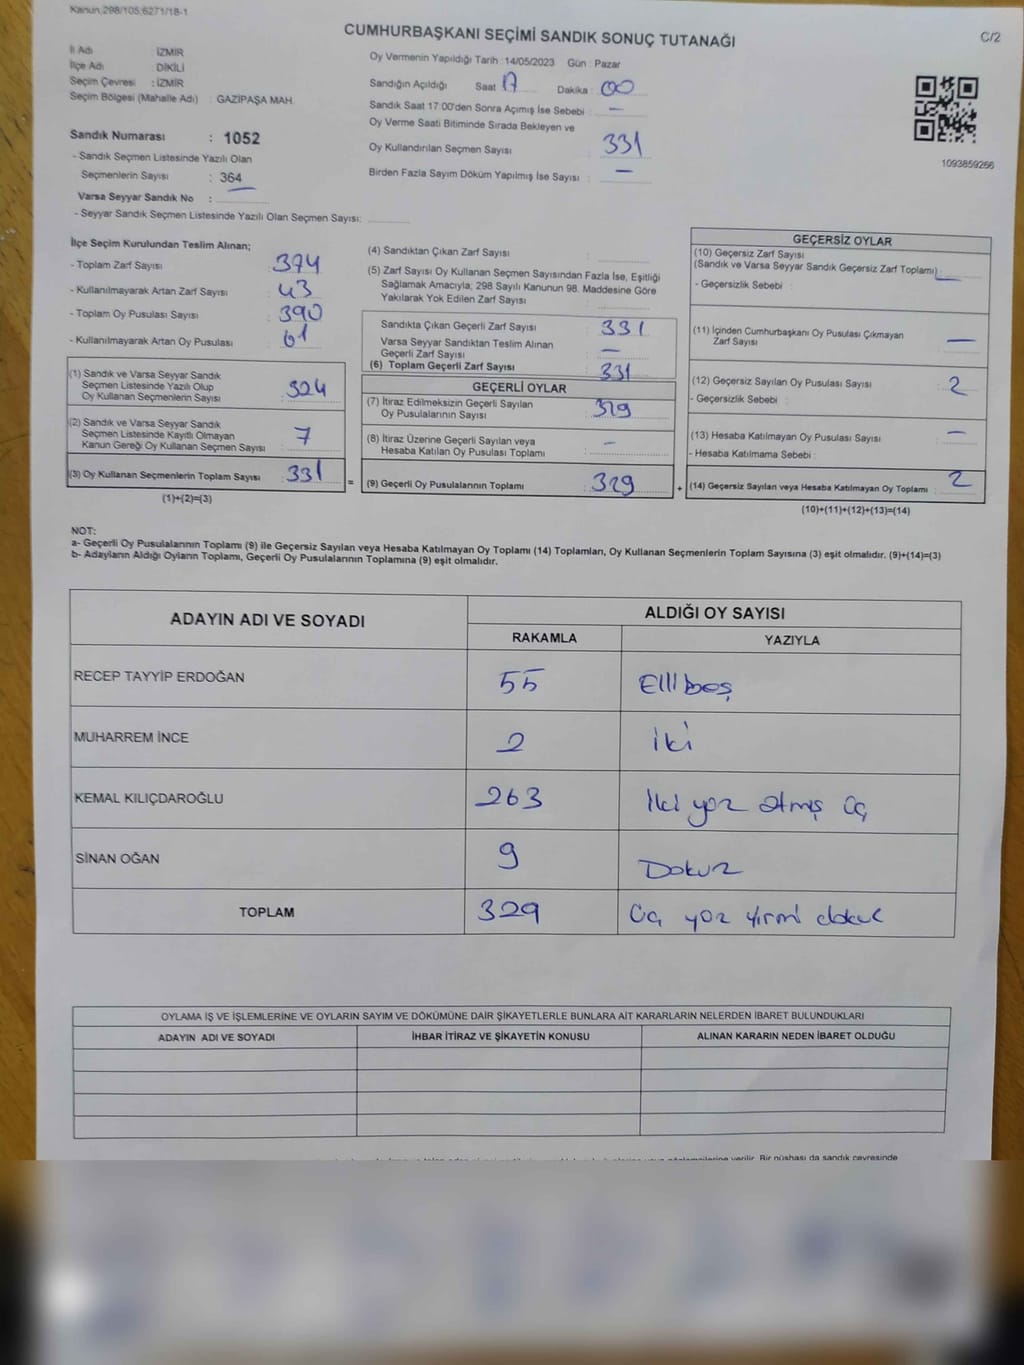 Kanun:298/105;6271/18-1
CUMHURBAŞKANI SEÇİMİ SANDIK SONUÇ TUTANAĞI
C/2
İl Adı : İZMİR
İlçe Adı : DİKİLİ
Seçim Çevresi : İZMİR
Seçim Bölgesi (Mahalle Adı) : GAZİPAŞA MAH.
Sandık Numarası : 1052
- Sandık Seçmen Listesinde Yazılı Olan
Seçmenlerin Sayısı : 364
Varsa Seyyar Sandık No :
- Seyyar Sandık Seçmen Listesinde Yazılı Olan Seçmen Sayısı:
Oy Vermenin Yapıldığı Tarih :14/05/2023 Gün : Pazar
Sandığın Açıldığı Saat 17 Dakika : 00
Sandık Saat 17:00'den Sonra Açımış İse Sebebi : —
Oy Verme Saati Bitiminde Sırada Bekleyen ve
Oy Kullandırılan Seçmen Sayısı : 331
Birden Fazla Sayım Döküm Yapılmış İse Sayısı : —
1093859266
İlçe Seçim Kurulundan Teslim Alınan;
- Toplam Zarf Sayısı : 374
- Kullanılmayarak Artan Zarf Sayısı : 43
- Toplam Oy Pusulası Sayısı : 390
- Kullanılmayarak Artan Oy Pusulası : 61
(1) Sandık ve Varsa Seyyar Sandık
Seçmen Listesinde Yazılı Olup
Oy Kullanan Seçmenlerin Sayısı : 324
(2) Sandık ve Varsa Seyyar Sandık
Seçmen Listesinde Kayıtlı Olmayan
Kanun Gereği Oy Kullanan Seçmen Sayısı : 7
(3) Oy Kullanan Seçmenlerin Toplam Sayısı : 331
(1)+(2)=(3)
=
(4) Sandıktan Çıkan Zarf Sayısı :
(5) Zarf Sayısı Oy Kullanan Seçmen Sayısından Fazla İse, Eşitliği
Sağlamak Amacıyla; 298 Sayılı Kanunun 98. Maddesine Göre
Yakılarak Yok Edilen Zarf Sayısı :
Sandıkta Çıkan Geçerli Zarf Sayısı : 331
Varsa Seyyar Sandıktan Teslim Alınan
Geçerli Zarf Sayısı : —
(6) Toplam Geçerli Zarf Sayısı : 331
GEÇERLİ OYLAR
(7) İtiraz Edilmeksizin Geçerli Sayılan
Oy Pusulalarının Sayısı : 329
(8) İtiraz Üzerine Geçerli Sayılan veya
Hesaba Katılan Oy Pusulası Toplamı : —
(9) Geçerli Oy Pusulalarının Toplamı : 329
+
GEÇERSİZ OYLAR
(10) Geçersiz Zarf Sayısı
(Sandık ve Varsa Seyyar Sandık Geçersiz Zarf Toplamı) : —
- Geçersizlik Sebebi :
(11) İçinden Cumhurbaşkanı Oy Pusulası Çıkmayan
Zarf Sayısı : —
(12) Geçersiz Sayılan Oy Pusulası Sayısı : 2
- Geçersizlik Sebebi :
(13) Hesaba Katılmayan Oy Pusulası Sayısı : —
- Hesaba Katılmama Sebebi :
(14) Geçersiz Sayılan veya Hesaba Katılmayan Oy Toplamı : 2
(10)+(11)+(12)+(13)=(14)
NOT:
a- Geçerli Oy Pusulalarının Toplamı (9) ile Geçersiz Sayılan veya Hesaba Katılmayan Oy Toplamı (14) Toplamları, Oy Kullanan Seçmenlerin Toplam Sayısına (3) eşit olmalıdır. (9)+(14)=(3)
b- Adayların Aldığı Oyların Toplamı, Geçerli Oy Pusulalarının Toplamına (9) eşit olmalıdır.
ADAYIN ADI VE SOYADI ALDIĞI OY SAYISI
RAKAMLA YAZIYLA
RECEP TAYYİP ERDOĞAN 55 Elli beş
MUHARREM İNCE 2 İki
KEMAL KILIÇDAROĞLU 263 İki yöz atmış üç
SİNAN OĞAN 9 Dokuz
TOPLAM 329 Üç yöz yirmi dokuz
OYLAMA İŞ VE İŞLEMLERİNE VE OYLARIN SAYIM VE DÖKÜMÜNE DAİR ŞİKAYETLERLE BUNLARA AİT KARARLARIN NELERDEN İBARET BULUNDUKLARI
ADAYIN ADI VE SOYADI İHBAR İTİRAZ VE ŞİKAYETİN KONUSU ALINAN KARARIN NEDEN İBARET OLDUĞU
verilir. Bir nüshası da sandık çevresinde